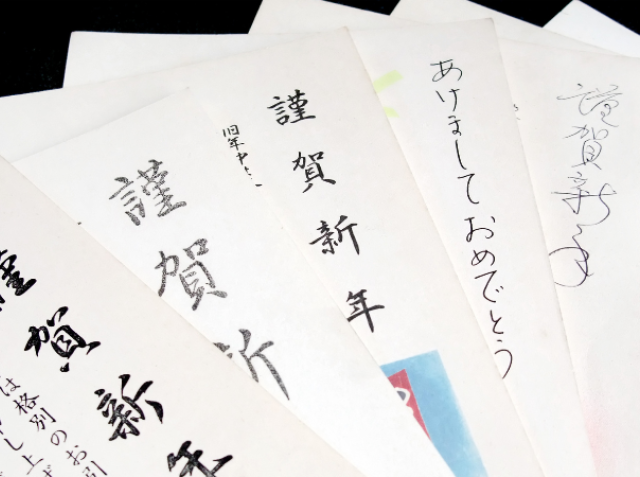 謹賀新年
あけましておめでとう
謹賀新年
旧年中
謹賀新
謹賀新年
は格別のお引
し上げ